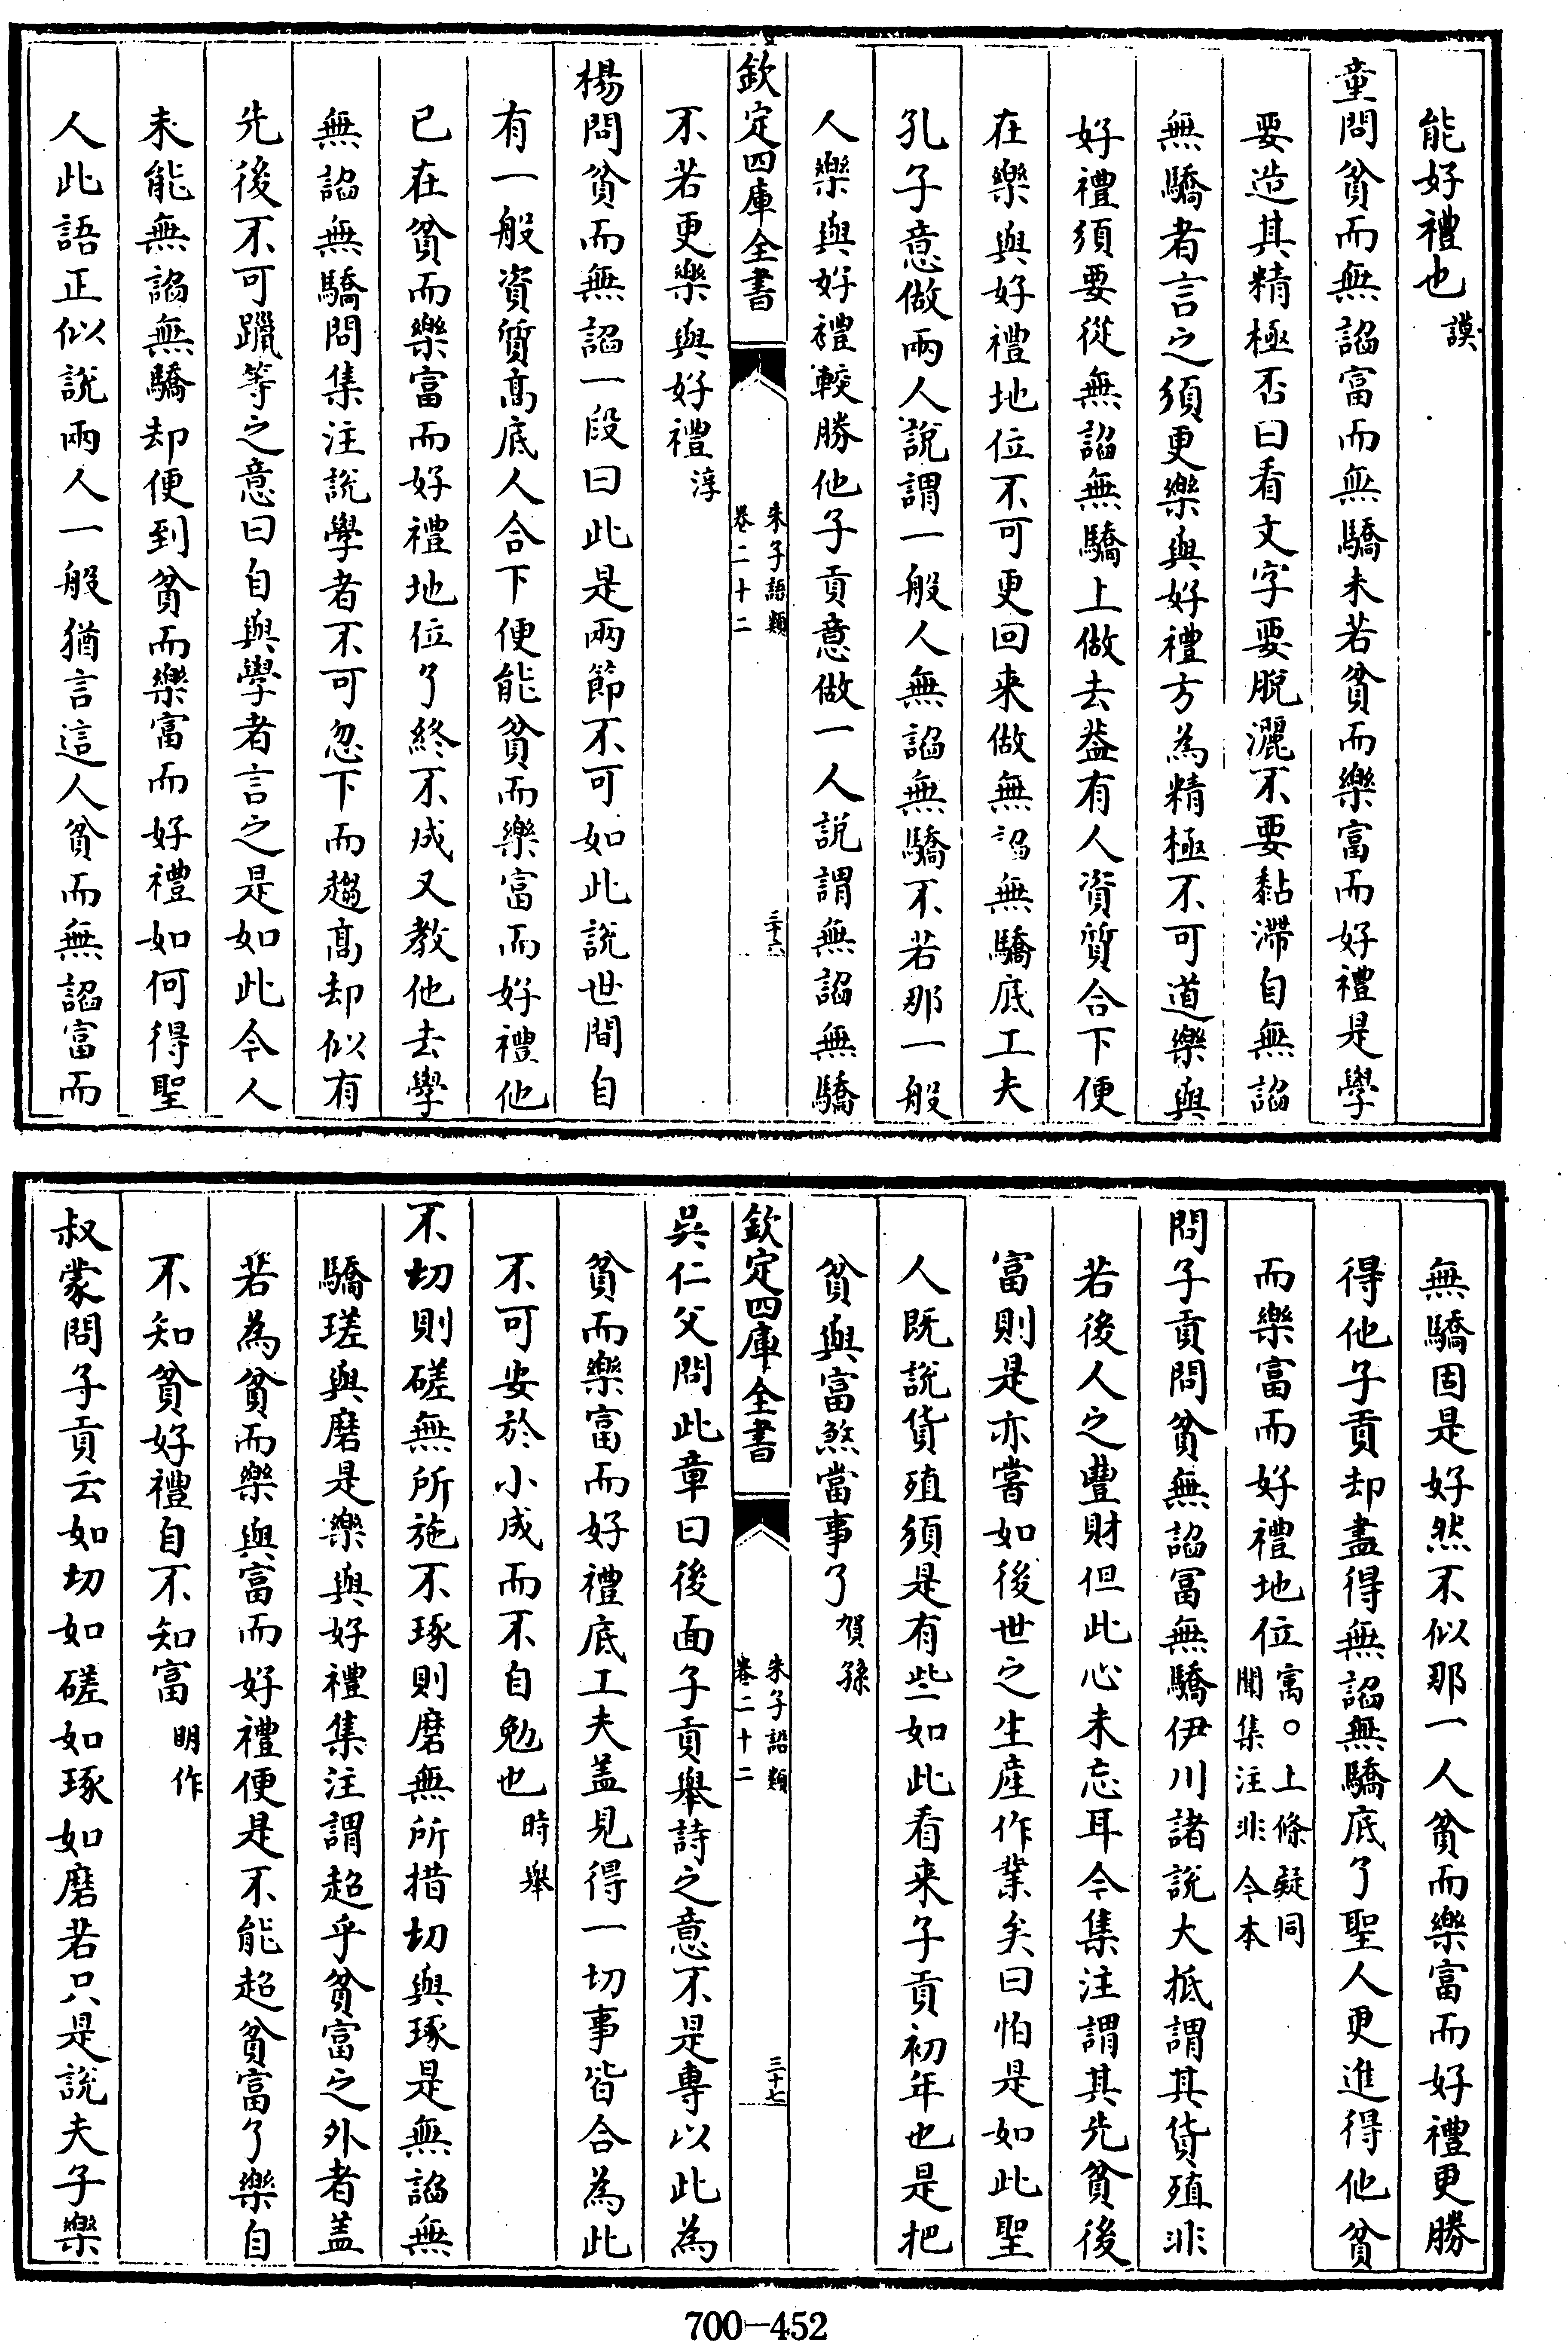 能好禮也謨
童問貧而無諂富而無驕未若貧而樂富而好禮是學
要造其精極否曰看文字要脫灑不要黏滯自無諂
無驕者言之須更樂與好禮方為精極不可道樂與
好禮須要從無諂無驕上做去葢有人資質合下便
在樂與好禮地位不可更回来做無諂無驕底工夫
孔子意做兩人說謂一般人無諂無驕不若那一般
人樂與好禮較勝他子貢意做一人說謂無諂無驕
欽定四庫全書
朱子語類
卷二十二
三十六
不若更樂與好禮淳
楊問貧而無諂一段曰此是兩節不可如此說世間自
有一般資質髙底人合下便能貧而樂富而好禮他
已在貧而樂富而好禮地位了終不成又教他去學
無諂無驕問集注說學者不可忽下而趨髙却似有
先後不可躐等之意曰自與學者言之是如此今人
未能無諂無驕却便到貧而樂富而好禮如何得聖
人此語正似說兩人一般猶言這人貧而無諂富而
無驕固是好然不似那一人貧而樂富而好禮更勝
得他子貢却盡得無諂無驕底了聖人更進得他貧
而樂富而好禮地位㝢○上條疑同
聞集注非今本
問子貢問貧無諂富無驕伊川諸說大抵謂其貨殖非
若後人之豐財但此心未忘耳今集注謂其先貧後
富則是亦嘗如後世之生産作業矣曰怕是如此聖
人既說貨殖須是有些如此看来子貢初年也是把
貧與富煞當事了賀孫
欽定四庫全書
朱子語類
卷二十二
三十七
吳仁父問此章曰後面子貢舉詩之意不是專以此為
貧而樂富而好禮底工夫盖見得一切事皆合為此
不可安於小成而不自勉也時舉
不切則磋無所施不琢則磨無所措切與琢是無諂無
驕瑳與磨是樂與好禮集注謂超乎貧富之外者盖
若為貧而樂與富而好禮便是不能超貧富了樂自
不知貧好禮自不知富明作
叔蒙問子貢云如切如磋如琢如磨若只是說夫子樂
700-452